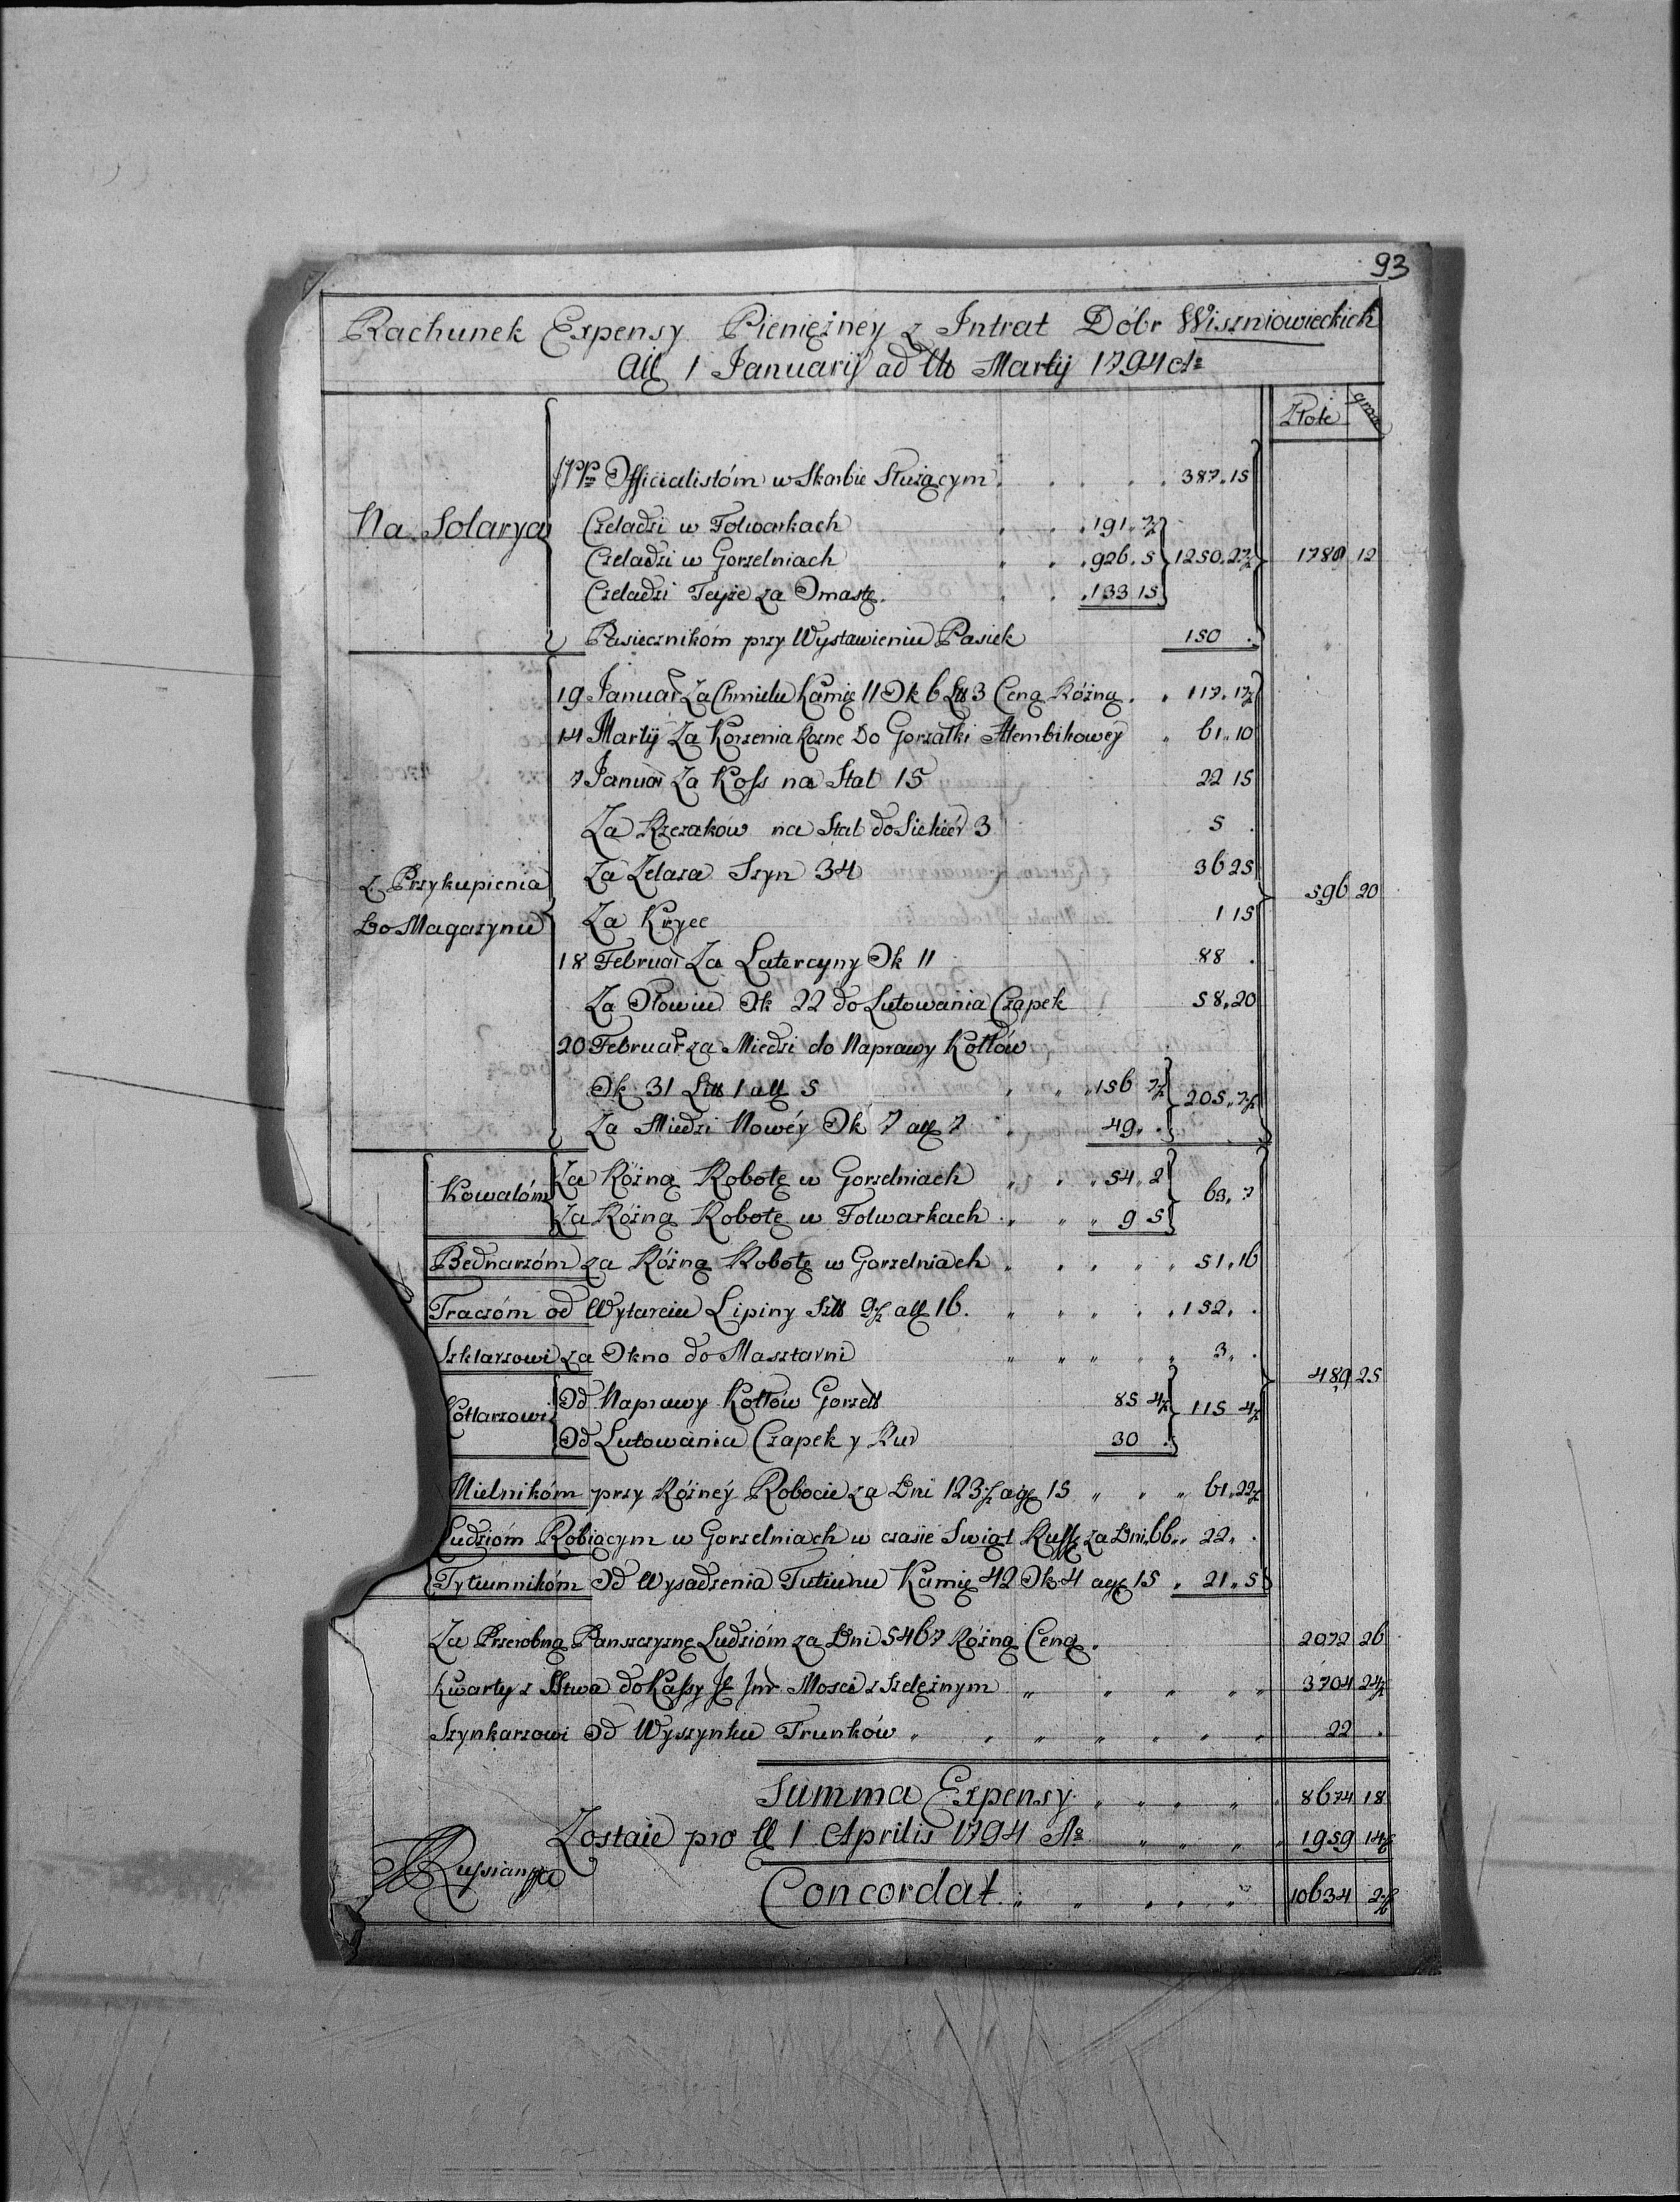 93
Rachunek Expensy Pieniężney z Intrat Dobr Wiszniowieckich
all 1 Januarij ad Marty 1794
Złote gro
Na Solarya
Officialistóm w Skarbie Służącym 387.15
Czeladzi w Folwarkach 191. 7½
Czeladzi w Gorzelniach 926. 5 1250.27½ 1789 12
Czeladzi Teyże za Omastę 133 15
Pasiecznikóm przy Wystawieniu Pasiek 150
Z Przykupienia
Do Magazynu
19 Januar Za Chmielu Kamię 11 Ok 6 3 Ceną Różną 117.17½
14 Martij Za Korzenia Rozne Do Gorzałki Alembikowéy 61.10
7 Januar Za Koss na Stal 15 22 15
Za Rzezaków na Stal do Siekiér 3 5
Za Zelaza Szyn 34 36 25
Za Kryce 1 15
18 Februar Za Latercyny Ok 11 88
Za Ołowiu Ok 22 do Lutowania Czapek 58.20
20 Februar za Miedzi do Naprawy Kotłów
Ok 31 1 all 5 156 7½ 205. 7½
Za Miedzi Nowéy Ok 7 all 7 49.
596 20
Kowalóm Za Różną Robotę w Gorzelniach 54. 2 63. 7
Za Różną Robotę w Folwarkach 9 5
Bednarzóm za Różną Robotę w Gorzelniach 51.16
Traczóm od Wytarciu Lipiny 9½ all 16. 152.
Szklarzowi za Okno do Masztarni 3.
489 25
Kotlarzowi Od Naprawy Kotłów Gorzell 85 4½ 115 4½
Od Lutowania Czapek y Rur 30
Mielnikóm przy Różnéy Robocie za Dni 123½ all 15 61.22½
Ludzióm Robiącym w Gorzelniach w czasie Swiąt Russ za Dni 66 22.
Tytiunnikóm Od Wysadzenia Tutiunu Kamię 42 Ok 4 all 15 21.5
Za Przerobną Panszczyznę Ludzióm za Dni 5467 Różną Ceną 2072 26
Kwarty z do Kassy Mosci z Szelężnym 3704 24½
Szynkarzowi Od Wyszynku Trunków 22
Summa Expensy 8674 18
Zostaie pro 1 Aprilis 1794 1959 14½
Concordat 10634 2½